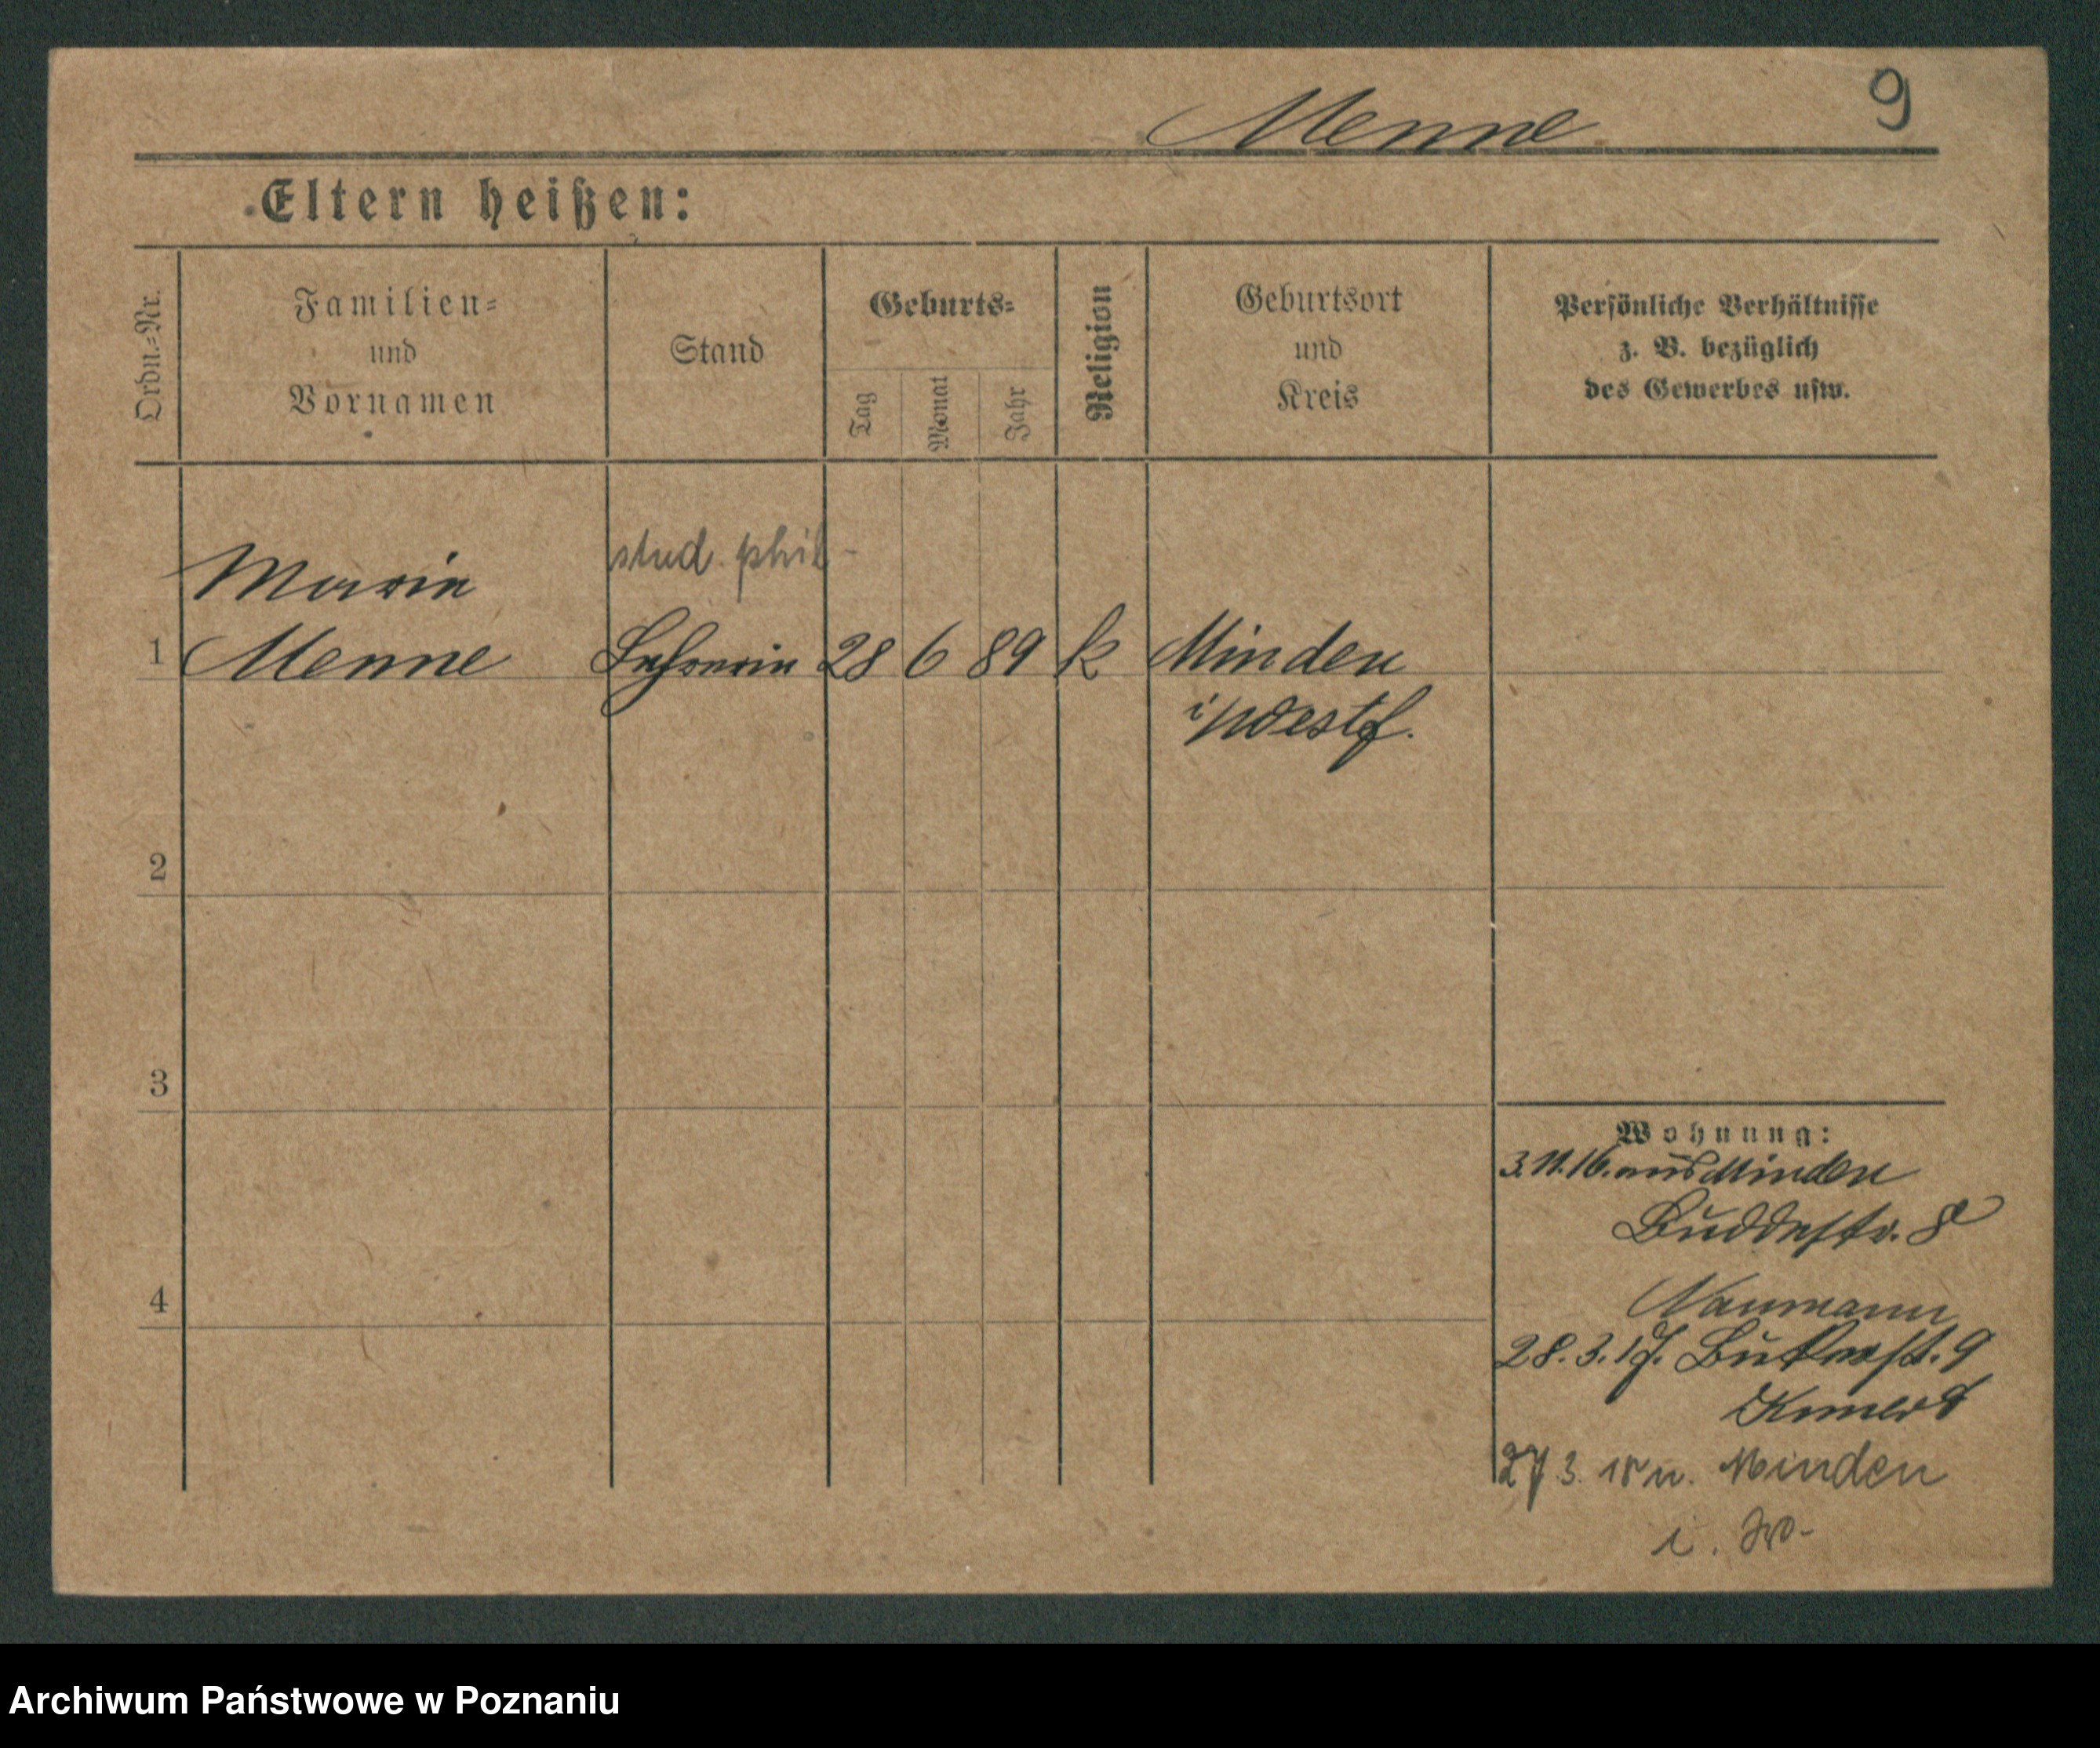 Menne 9
Eltern heißen:
Ordn.-Nr.
Familien-
und
Vornamen
Stand
Geburts-
Tag
Monat
Jahr
Religion
Geburtsort
und
Kreis
Persönliche Verhältnisse
z. B. bezüglich
des Gewerbes usw.
stud. phil
Maria
1 Menne Lehrerin 28 6 89 k Minden
i/Westf.
2
3
Wohnung:
3.11.16. aus Minden
Buddestr. 8
4
Naumann
28.3.17. Bukerst. 9
27 3. 18 n. Minden
i. W-
Archiwum Państwowe w Poznaniu